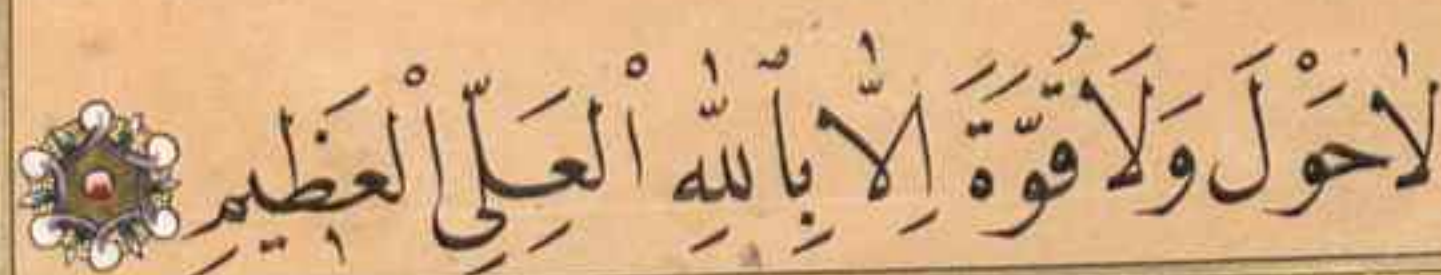 لَا حَوْلَ وَلَا قُوَّةَ اِلَّا بِٱللّٰهِ الْعَلِىِّ الْعَظ۪يمِ